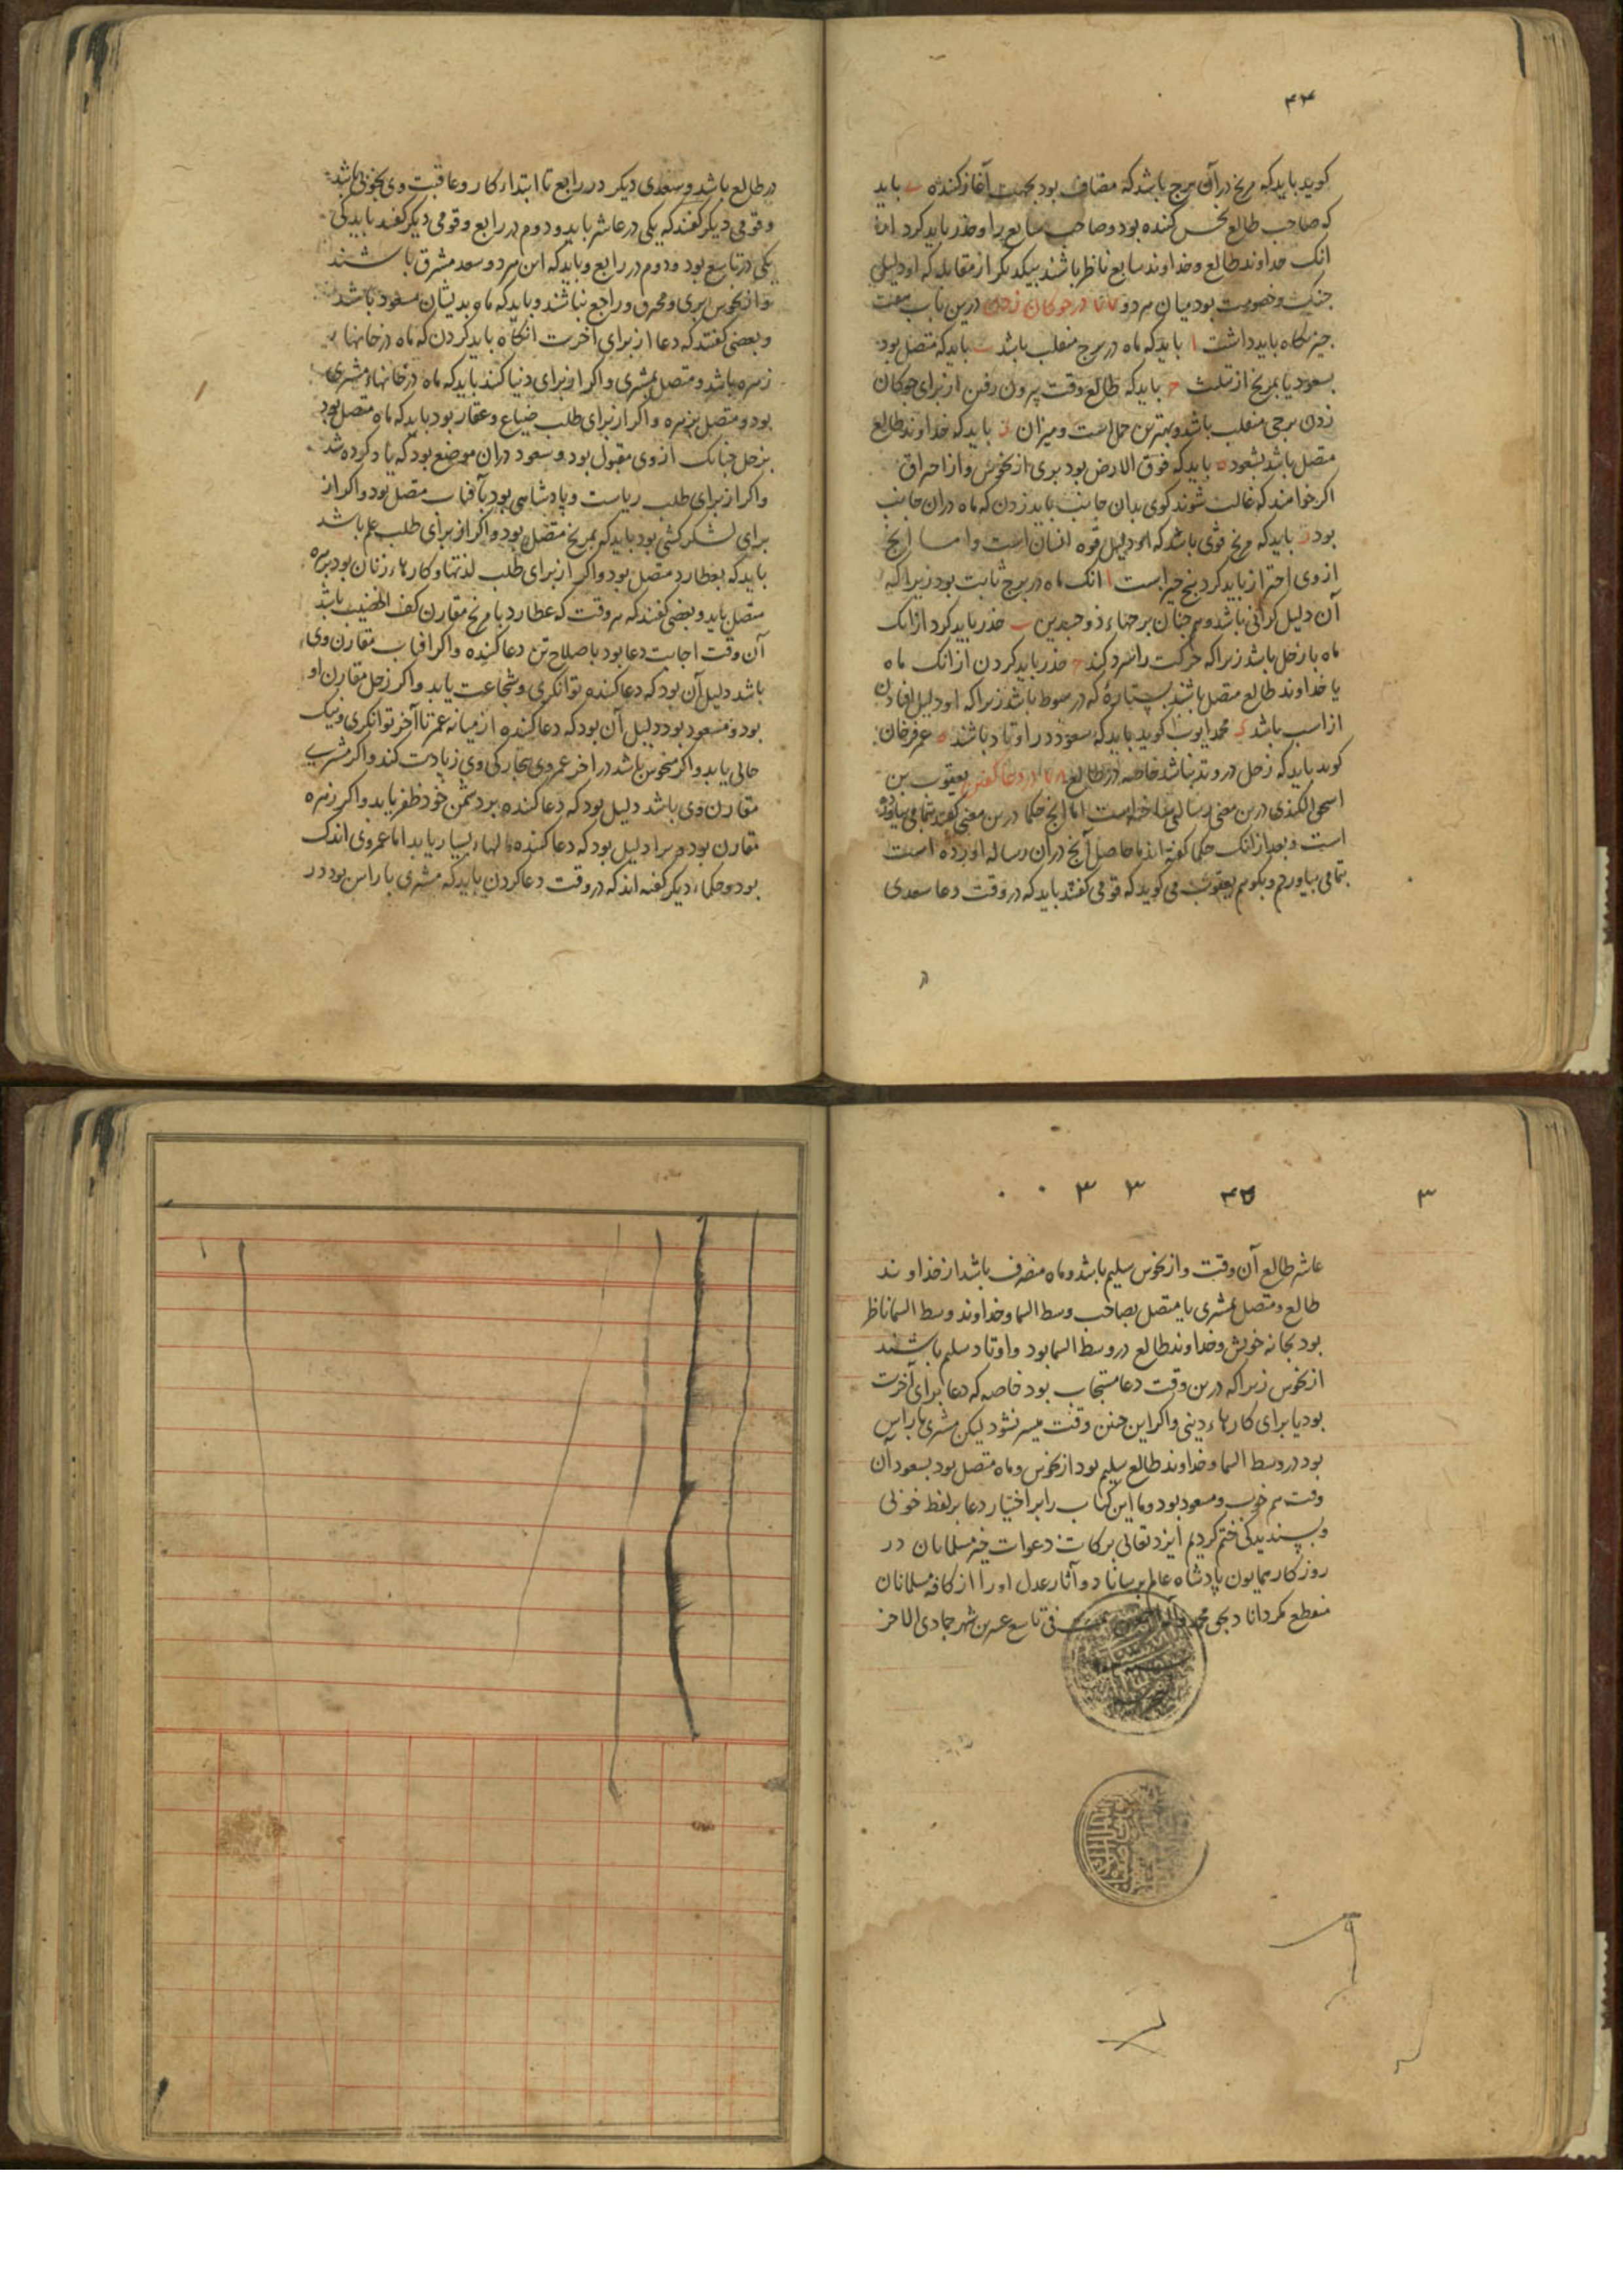 ۴۴
کوید باید که مریخ در آن برج باشد که مضاف بود بجهت آغاز کننده ب باید
که صاحب طالع نحس کننده بود و صاحب سابع را و حذر باید کرد از
انک خداوند طالع و خداوند سابع ناظر باشند بیکدیکر از مقابله که او دلیل
جنک و خصومت بود میان هر دو در چوکان زدن درین باب هفت
چیز نکاه باید داشت ا باید که ماه در برج منقلب باشد ب باید که متصل بود
بسعود یا بمریخ از تثلیث ج باید که طالع وقت بیرون رفتن از برای چوکان
زدن برجی منقلب باشد و بهترین حمل است و میزان د باید که خداوند طالع
متصل باشد بسعود ه باید که فوق الارض بود بری از نحوس و از احراق
اکر خواهند که غالب شوند کوی بدان جانب باید زدن که ماه دران جانب
بود ز باید که مریخ قوی باشد که او دلیل قوه انسان است و اما انچ
از وی احتراز باید کرد پنج چیز است ا انک ماه در برج ثابت بود زیرا که
آن دلیل کرانی باشد و همچنان برجهاء ذو جسدین ب حذر باید کرد از انک
ماه با زحل باشد زیرا که حرکت را سرد کند ج حذر باید کردن از انک ماه
یا خداوند طالع متصل باشند بستارهٔ که در هبوط باشد زیرا که او دلیل افتادن
از اسب باشد د محمد ایوب کوید باید که سعود در اوتاد باشند ه عمر فرخان
کوید باید که زحل در وتد نباشد خاصه در طالع در دعا کفتن یعقوب بن
اسحق الکندی درین معنی رسالتی ساخته است اما انچ حکما درین معنی کفته‌اند بتمامی بیاورده
است و بعد از انک حکما کفته اند ما حاصل آنچ در آن رساله آورده است
بتمامی بیاوردیم و بکوییم یعقوب می کوید که قومی کفتند باید که در وقت دعا سعدی
در طالع باشد و سعدی دیکر در رابع تا ابتداء کار و عاقبت وی بخوبی باشد
و قومی دیکر کفتند که یکی در عاشر باید و دوم در رابع و قومی دیکر کفتند باید کی
یکی در تاسع بود و دوم در رابع و باید که این هر دو سعد مشرق باشند
و از نحوس بری و محرق و راجع نباشند و باید که ماه بدیشان مسعود باشد
و بعضی کفتند که دعا از برای آخرت انکاه باید کردن که ماه در خانهاء
زهره باشد و متصل بمشتری و اکر از برای دنیا کنند باید که ماه در خانهاء مشتری
بود و متصل بزهره و اکر از برای طلب ضیاع و عقار بود باید که ماه متصل بود
بزحل چنانک از وی مقبول بود و سعود در آن موضع بود که یاد کرده شد
و اکر از برای طلب ریاست و پادشاهی بود بآفتاب متصل بود و اکر از
برای لشکر کشی بود باید که بمریخ متصل بود و اکر از برای طلب علم باشد
باید که بعطارد متصل بود و اکر از برای طلب لذتها و کارهاء زنان بود بزهره
متصل باید و بعضی کفتند که هر وقت که عطارد با مریخ مقارن کف الخضیب باشد
آن وقت اجابت دعا بود با صلاح تن دعا کننده و اکر آفتاب مقارن وی
باشد دلیل آن بود که دعا کننده توانکری و شجاعت یابد و اکر زحل مقارن او
بود و مسعود بود دلیل آن بود که دعا کننده از میانه عمر تا آخر توانکری و نیک
حالی یابد و اکر منحوس باشد در آخر عمر وی بیچارکی وی زیادت کند و اکر مشتری
مقارن وی باشد دلیل بود که دعا کننده بر دشمن خود ظفر یابد و اکر زهره
مقارن بود مر او را دلیل بود که دعا کننده مالهاء بسیار یابد اما عمر وی اندک
بود و حکماء دیکر کفته اند که در وقت دعا کردن باید که مشتری با راس بود در
۳ ۴۵ ۳ ۳ ۰ ۰
عاشر طالع آن وقت و از نحوس سلیم باشد و ماه منصرف باشد از خداوند
طالع و متصل بمشتری یا متصل بصاحب وسط السما و خداوند وسط السما ناظر
بود بخانه خویش و خداوند طالع در وسط السما بود و اوتاد سلیم باشند
از نحوس زیرا که درین وقت دعا مستجاب بود خاصه که دعا برای آخرت
بود یا برای کارهاء دینی و اکر این چنین وقت میسر نشود لیکن مشتری با راس
بود در وسط السما و خداوند طالع سلیم بود از نحوس و ماه متصل بود بسعود آن
وقت هم خوب و مسعود بود و ما این کتاب را بر اختیار دعا بر لفظ خوبی
و پسندیدکی ختم کردیم ایزد تعالی برکات دعوات خیر مسلمانان در
روزکار همایون پادشاه عالم برساناد و آثار عدل او را از کافه مسلمانان
منقطع مکرداناد بحق محمد وآله اجمعین فی تاسع عشرین شهر جمادی الاخر